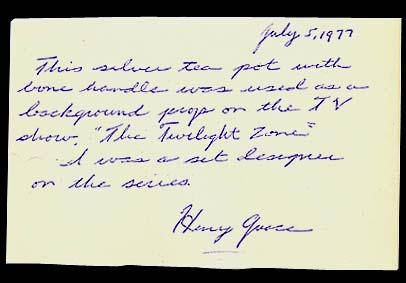 July 5, 1977
This silver tea pot with
bone handle was used as a
background prop on the TV
show, "The Twilight Zone"
I was a set designer
on the series.
Henry Grace